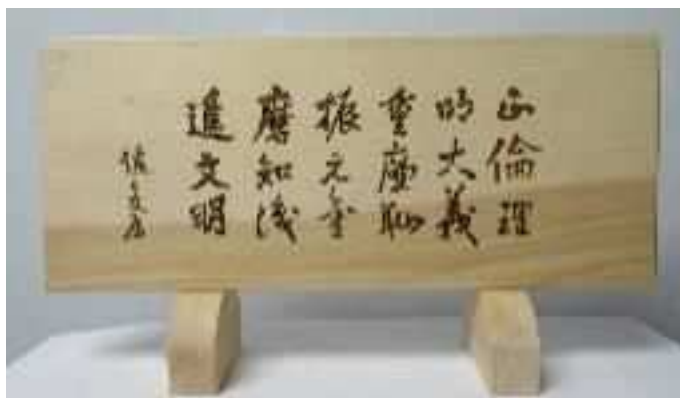 正倫理
明大義
重廉恥
振元気
磨知識
進文明